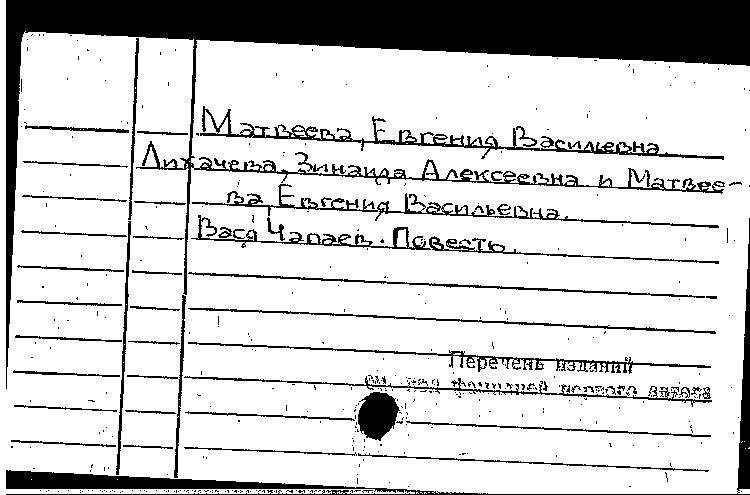 Матвеева, Евгения Васильевна
Лихачева, Зинаида Алексеевна и Матвее-
ва Евгения Васильевна.
Вася Чапаев. Повесть.
Перечень изданий
см. под фамилией первого автора